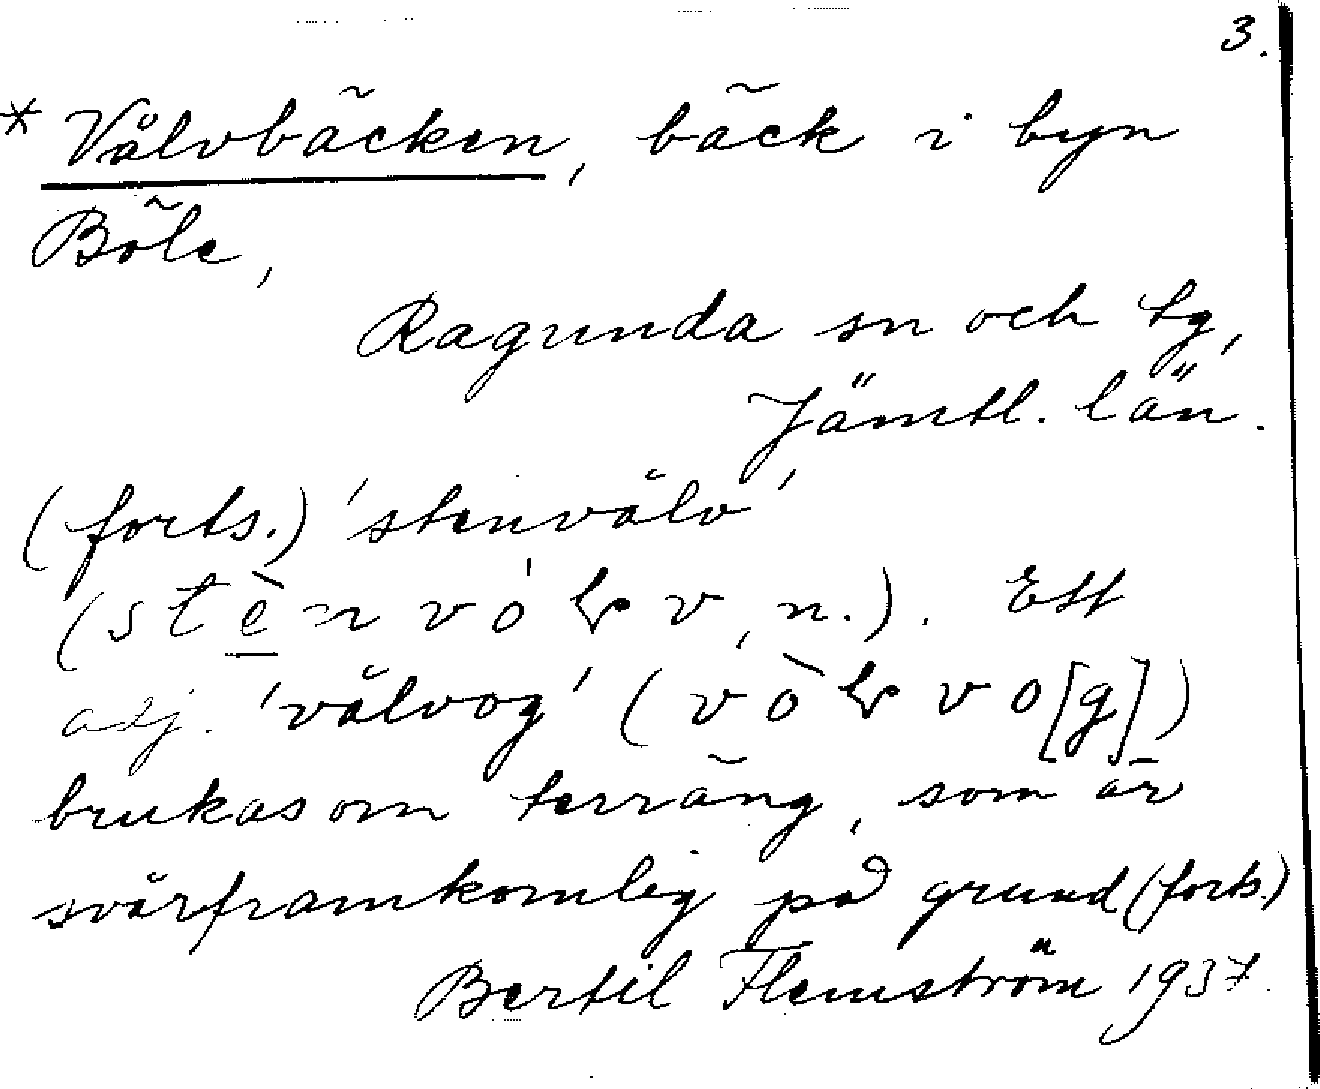 3.
* Vålvbäcken, bäck i byn
Böle,
Ragunda sn och tg,
Jämtl. län.
(forts.) 'stenvålv'
(stènvólv, n.). Ett
adj. 'vålvog' (vòlvo[g])
brukas om terräng, som är
svårframkomlig på grund (forts.)
Bertil Flemström 1937.